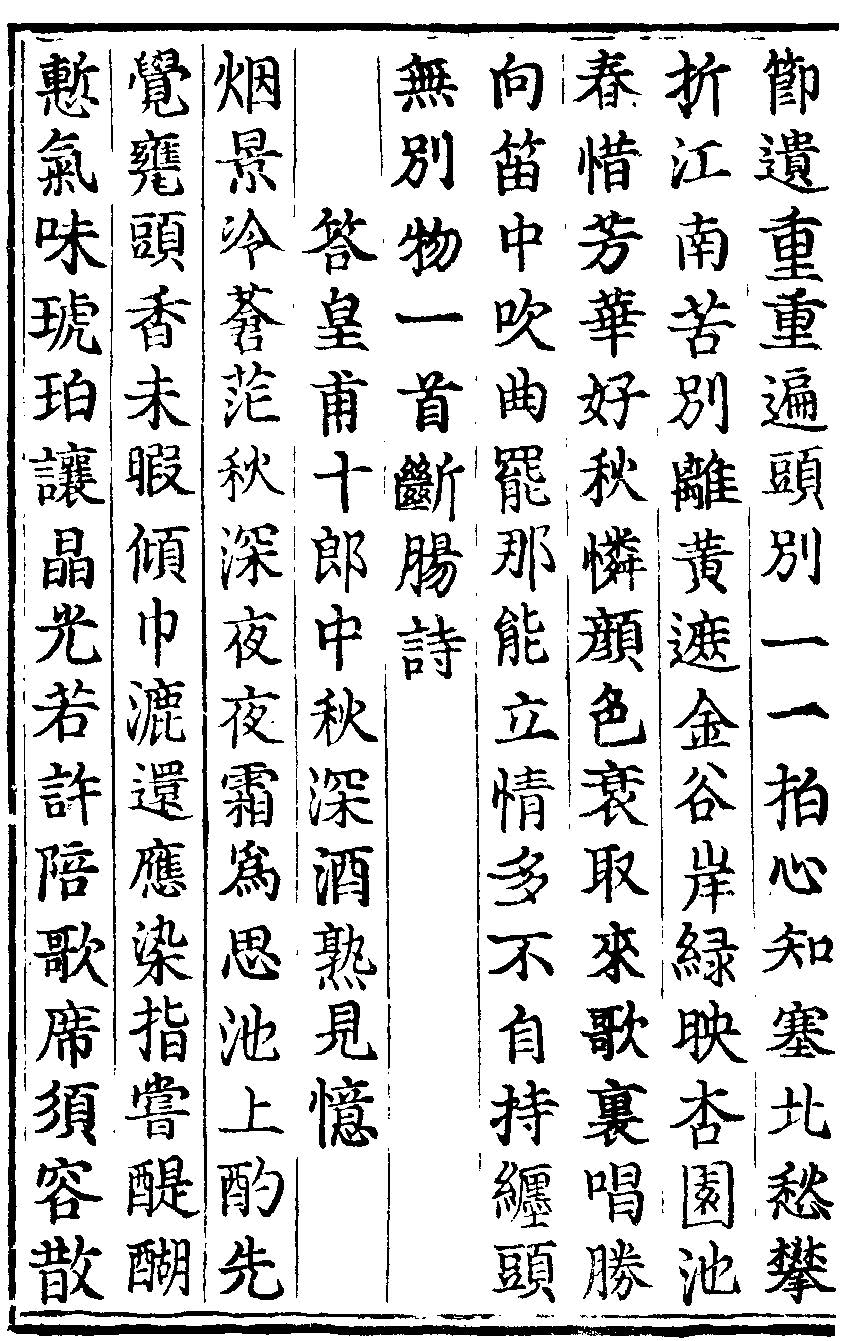 節遺重重遍頭別一一拍心知塞北愁攀
折江南苦別離黃遮金谷岸綠映杏園池
春惜芳華好秋憐顔色衰取來歌裏唱勝
向笛中吹曲罷那能立情多不自持纏頭
無別物一首斷腸詩
答皇甫十郎中秋深酒熟見憶
烟景冷蒼茫秋深夜夜霜爲思池上酌先
覺甕頭香未暇傾巾漉還應染指嘗醍醐
慙氣味琥珀讓晶光若許陪歌席須容散